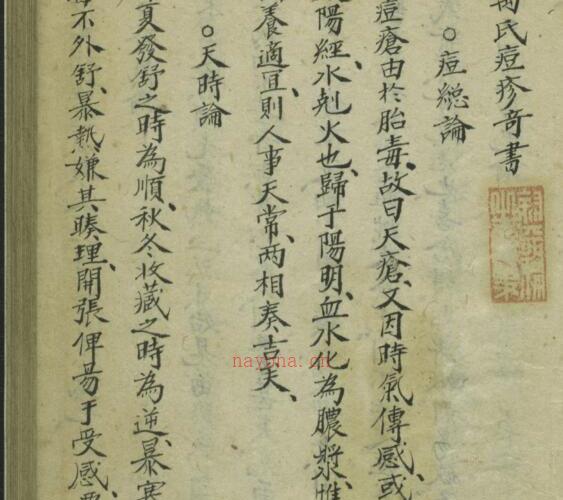 氏痘疹奇書
○痘総論
痘瘡由於胎毒、故曰天瘡、又因時氣傳感、或
陽經、水剋火也、歸于陽明、血水化為膿漿、惟
養適宜、則人事天常、两相奏吉矣、
○天時論
夏發舒之時為順、秋冬收藏之時為逆、暴寒
不外舒、暴熱嫌其腠理、開張俾易于受感、
nayona.cn